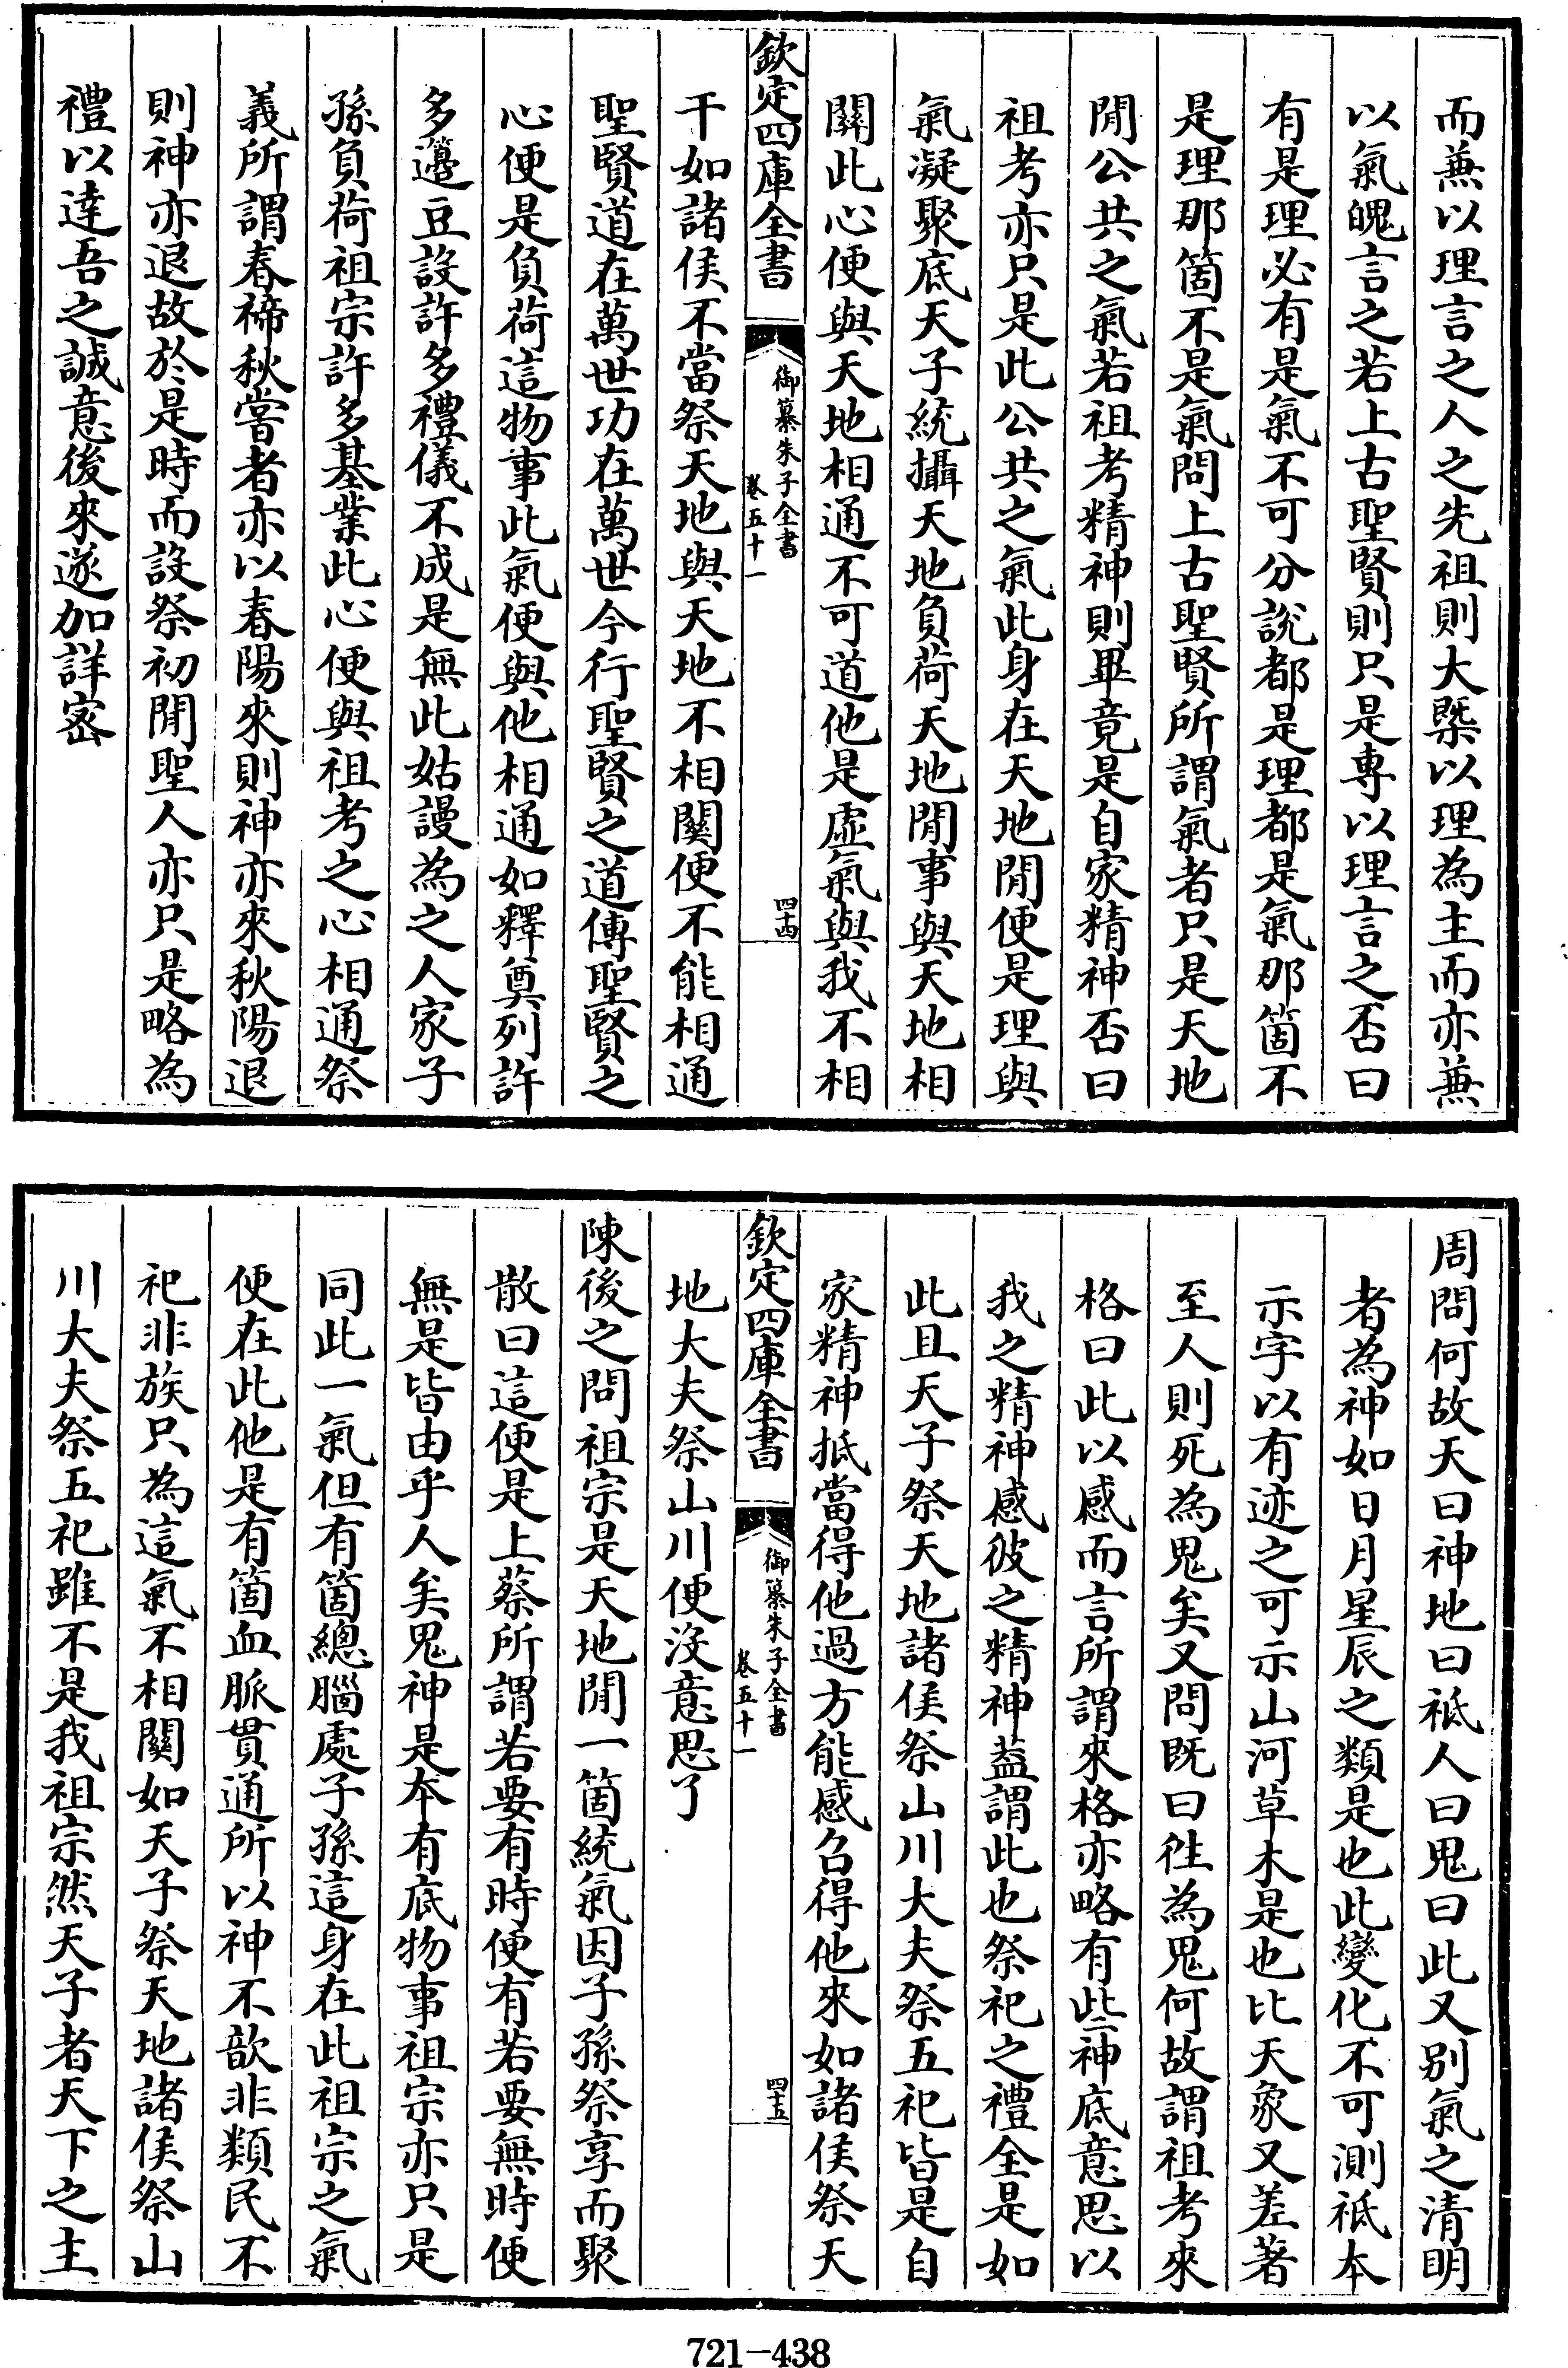 而兼以理言之人之先祖則大槩以理為主而亦兼
以氣魄言之若上古聖賢則只是專以理言之否曰
有是理必有是氣不可分說都是理都是氣那箇不
是理那箇不是氣問上古聖賢所謂氣者只是天地
閒公共之氣若祖考精神則畢竟是自家精神否曰
祖考亦只是此公共之氣此身在天地閒便是理與
氣凝聚底天子統攝天地負荷天地閒事與天地相
關此心便與天地相通不可道他是虛氣與我不相
欽定四庫全書
御纂朱子全書
卷五十一
四十四
干如諸侯不當祭天地與天地不相關便不能相通
聖賢道在萬世功在萬世今行聖賢之道傳聖賢之
心便是負荷這物事此氣便與他相通如釋奠列許
多籩豆設許多禮儀不成是無此姑謾為之人家子
孫負荷祖宗許多基業此心便與祖考之心相通祭
義所謂春禘秋嘗者亦以春陽來則神亦來秋陽退
則神亦退故於是時而設祭初閒聖人亦只是略為
禮以達吾之誠意後來遂加詳密
周問何故天曰神地曰祗人曰鬼曰此又別氣之清明
者為神如日月星辰之類是也此變化不可測祗本
示字以有迹之可示山河草木是也比天象又差著
至人則死為鬼矣又問既曰往為鬼何故謂祖考來
格曰此以感而言所謂來格亦略有些神底意思以
我之精神感彼之精神葢謂此也祭祀之禮全是如
此且天子祭天地諸侯祭山川大夫祭五祀皆是自
家精神抵當得他過方能感召得他來如諸侯祭天
欽定四庫全書
御纂朱子全書
卷五十一
四十五
地大夫祭山川便沒意思了
陳後之問祖宗是天地閒一箇統氣因子孫祭享而聚
散曰這便是上蔡所謂若要有時便有若要無時便
無是皆由乎人矣鬼神是本有底物事祖宗亦只是
同此一氣但有箇總腦處子孫這身在此祖宗之氣
便在此他是有箇血脈貫通所以神不歆非類民不
祀非族只為這氣不相關如天子祭天地諸侯祭山
川大夫祭五祀雖不是我祖宗然天子者天下之主
721-438